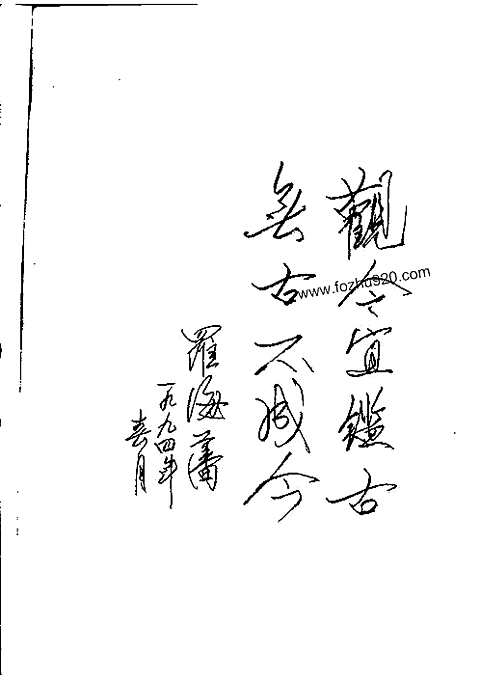 觀今宜鑑古
無古不成今
羅海藩
一九九四年
春月
www.fozhu920.com